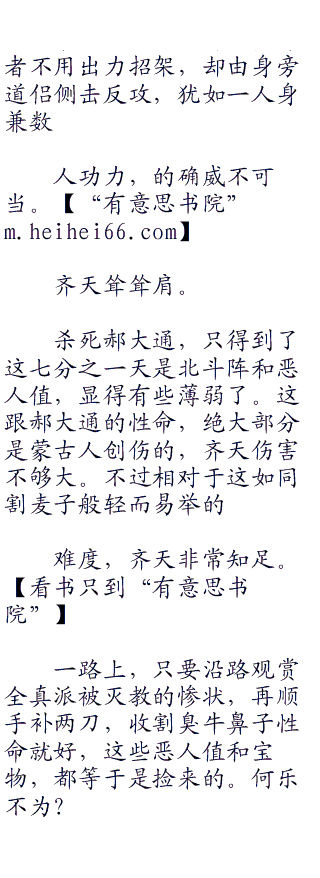 者不用出力招架，却由身旁
道侣侧击反攻，犹如一人身
兼数
人功力，的确威不可
当。【“有意思书院”
m.heihei66.com】
齐天耸耸肩。
杀死郝大通，只得到了
这七分之一天是北斗阵和恶
人值，显得有些薄弱了。这
跟郝大通的性命，绝大部分
是蒙古人创伤的，齐天伤害
不够大。不过相对于这如同
割麦子般轻而易举的
难度，齐天非常知足。
【看书只到“有意思书
院”】
一路上，只要沿路观赏
全真派被灭教的惨状，再顺
手补两刀，收割臭牛鼻子性
命就好，这些恶人值和宝
物，都等于是捡来的。何乐
不为？